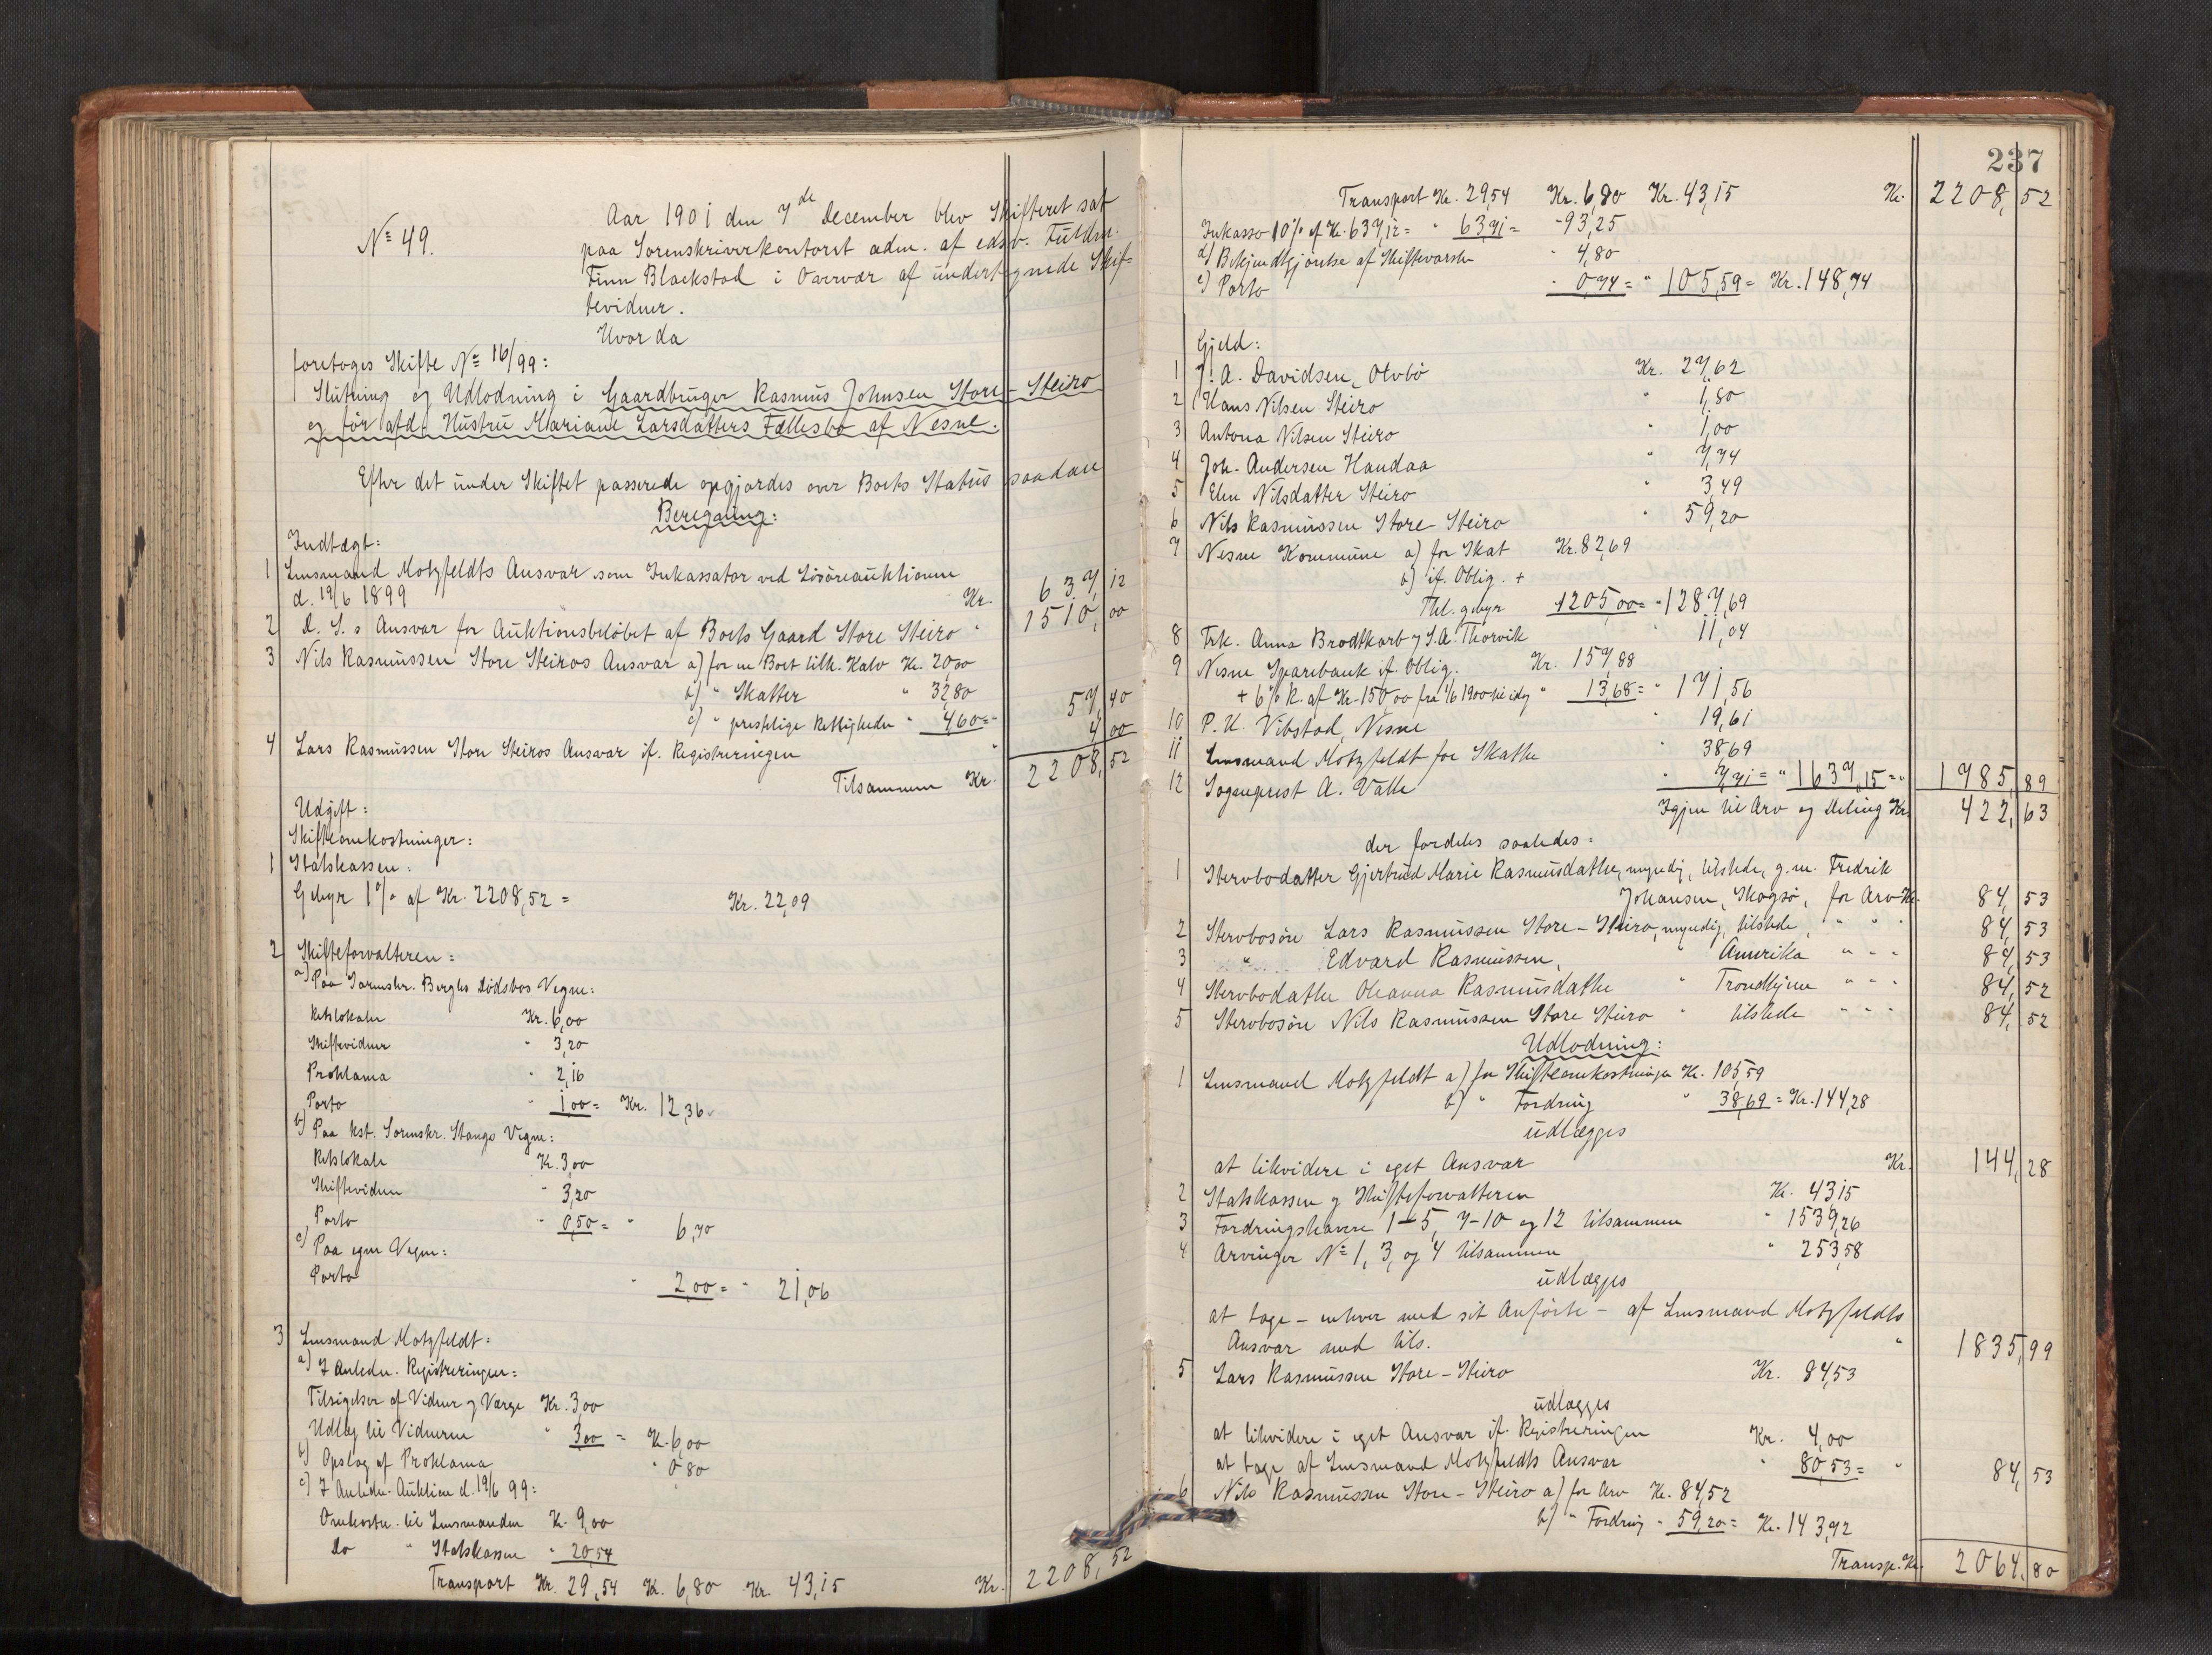 Aar 1901 den 7de December blev Skifteret sat
No 49.
paa Sorenskriverkontoret adm. af edsv. Fuldm.
Finn Blackstad i Overvær af undertegnede Skif-
tevidner.
Hvor da
foretoges Skifte No 16/99:
Slutning og Udlodning i Gaardbruger Rasmus Johnsen Store-Steiro
og før afd. Hustru Mariane Larsdatters Fællesbo af Nesne.
Efter det under Skiftet passerede opgjordes over Boets Status saadan
Beregning:
Indtægt:
1 Lensmand Motzfeldts Ansvar som Inkassator ved Løsøreauktionen
d. 19/6 1899 Kr. 637,12
2 D. S.s Ansvar for Auktionsbeløbet af Boets Gaard Store Steiro " 1510,00
3 Nils Rasmussen Store Steiros Ansvar a) for en Boet tilh. Kalv Kr. 20,00
b) " Skatter " 32,80
c) " prestlige Rettigheder " 4,60 = " 57,40
4 Lars Rasmussen Store Steiros Ansvar if. Registreringen " 4,00
Tilsammen Kr. 2208,52
Udgift:
Skifteomkostninger:
1 Statskassen:
Gebyr 1% af Kr. 2208,52 = Kr. 22,09
2 Skifteforvalteren:
a) Paa Sorenskr. Berghs Dødsbos Vegne:
Retslokale Kr. 6,00
Skiftevidner " 3,20
Proklama " 2,16
Porto " 1,00 = Kr. 12,36
b) Paa kst. Sorenskr. Stangs Vegne:
Retslokale Kr. 3,00
Skiftevidner " 3,20
Porto " 0,50 = " 6,70
c) Paa egne Vegne:
Porto " 2,00 = " 21,06
3 Lensmand Motzfeldt:
a) I Anledn. Registreringen:
Tilsigelser af Vidner og Værge Kr. 3,00
Udlæg til Vidnerne " 3,00 = Kr. 6,00
b) Opslag af Proklama " 0,80
c) I Anledn. Auktion d. 19/6 99:
Omkostn. til Lensmanden Kr. 9,00
Do " Statskassen " 20,54
Transport Kr. 29,54 Kr. 6,80 Kr. 43,15 Kr. 2208,52
237
Transport Kr. 29,54 Kr. 6,80 Kr. 43,15 Kr. 2208,52
Inkasso 10% af Kr. 637,12 = " 63,71 = " 93,25
d) Bekjendtgjørelse af Skiftevarsler " 4,80
e) Porto " 0,74 = " 105,59 = Kr. 148,74
Gjeld:
1 J. A. Davidsen, Olvbø Kr. 27,62
2 Hans Nilsen Steiro " 1,80
3 Antona Nilsen Steiro " 1,00
4 Joh. Andersen Handaa " 7,74
5 Elen Nilsdatter Steiro " 3,49
6 Nils Rasmussen Store-Steiro " 59,20
7 Nesne Kommune a) for Skat Kr. 82,69
b) if. Oblig. +
Thl. gebyr 1205,00 = " 1287,69
8 Frk. Anna Brodtkorb og S.A. Thorvik " 11,04
9 Nesne Sparebank if. Oblig. Kr. 157,88
+ 6% R. af Kr. 150,00 fra 1/6 1900 til idag " 13,68 = " 171,56
10 P. U. Vibstad, Nesne " 19,61
11 Lensmand Motzfeldt for Skatter " 38,69
12 Sogneprest A. Valle " 7,71 = " 1637,15 = " 1785,89
Igjen til Arv og Deling Kr. 422,63
der fordeles saaledes:
1 Stervbodatter Gjertrud Marie Rasmusdatter, myndig, tilstede, g.m. Fredrik
Johansen, Skogsø, for Arv Kr. 84,53
2 Stervbosøn Lars Rasmussen Store-Steiro, myndig, tilstede, " " " 84,53
3 " Edvard Rasmussen, " Amerika " " " 84,53
4 Stervbodatter Oleanna Rasmusdatter " Trondhjem " " " 84,52
5 Stervbosøn Nils Rasmussen Store Steiro " tilstede " " " 84,52
Udlodning:
1 Lensmand Motzfeldt a) for Skifteomkostninger Kr. 105,59
b) " Fordring " 38,69 = Kr. 144,28
udlægges
at likvidere i eget Ansvar Kr. 144,28
2 Statskassen og Skifteforvalteren Kr. 43,15
3 Fordringshavere 1-5, 7-10 og 12 tilsammen " 1539,26
4 Arvinger No 1, 3, og 4 tilsammen " 253,58
udlægges
at tage - enhver med sit Anførte - af Lensmand Motzfeldts
Ansvar med tils. " 1835,99
5 Lars Rasmussen Store-Steiro Kr. 84,53
udlægges
at likvidere i eget Ansvar if. Registreringen Kr. 4,00
at tage af Lensmand Motzfeldts Ansvar " 80,53 = " 84,53
6 Nils Rasmussen Store-Steiro a) for Arv Kr. 84,52
b) " Fordring " 59,20 = Kr. 143,72
Transp. Kr. 2064,80